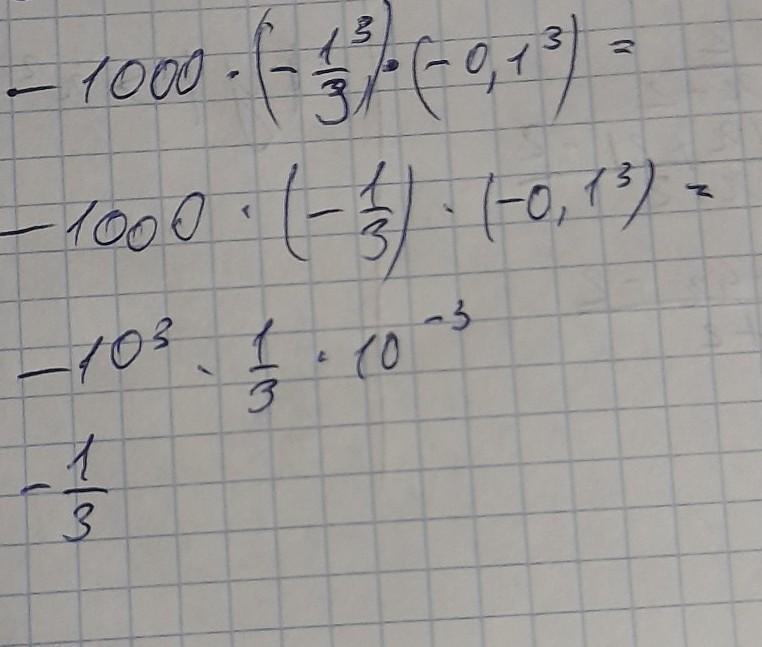 - 1000 · (- 1³/3) · (- 0,1³) =
- 1000 · (- 1/3) · (-0,1³) =
- 10³ · 1/3 · 10⁻³
- 1/3